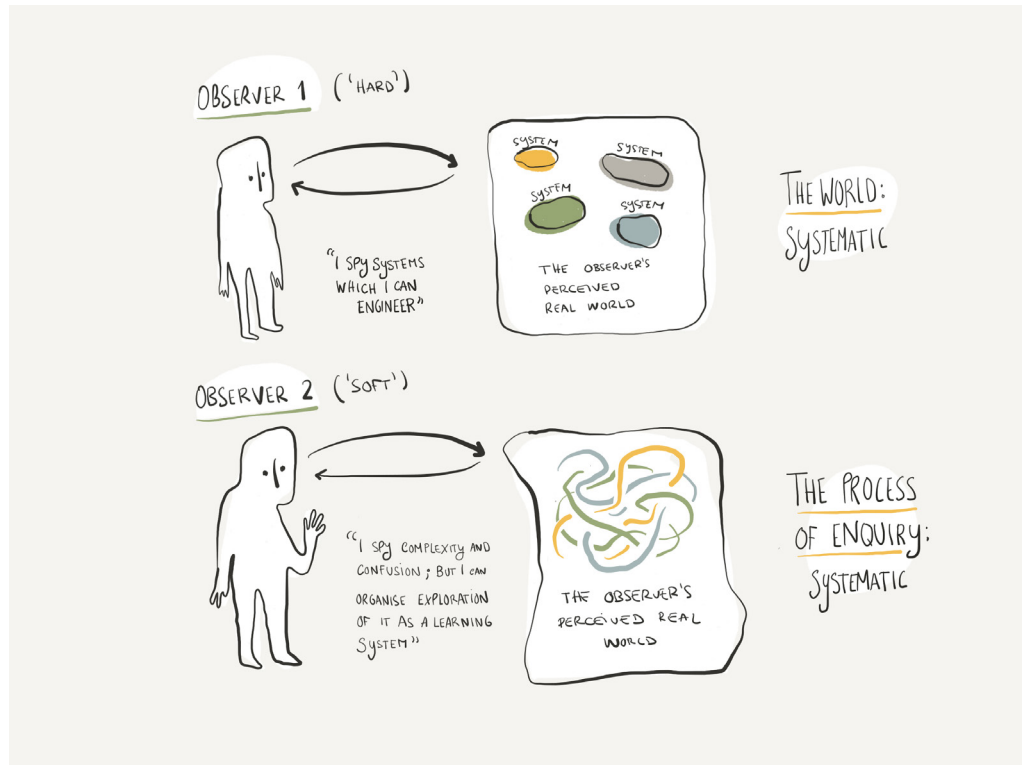 OBSERVER 1 ('HARD')
SYSTEM
SYSTEM
SYSTEM
SYSTEM
"I SPY SYSTEMS
WHICH I CAN
ENGINEER"
THE OBSERVER'S
PERCEIVED
REAL WORLD
THE WORLD:
SYSTEMATIC
OBSERVER 2 ('SOFT')
"I SPY COMPLEXITY AND
CONFUSION; BUT I CAN
ORGANISE EXPLORATION
OF IT AS A LEARNING
SYSTEM"
THE OBSERVER'S
PERCEIVED REAL
WORLD
THE PROCESS
OF ENQUIRY:
SYSTEMATIC